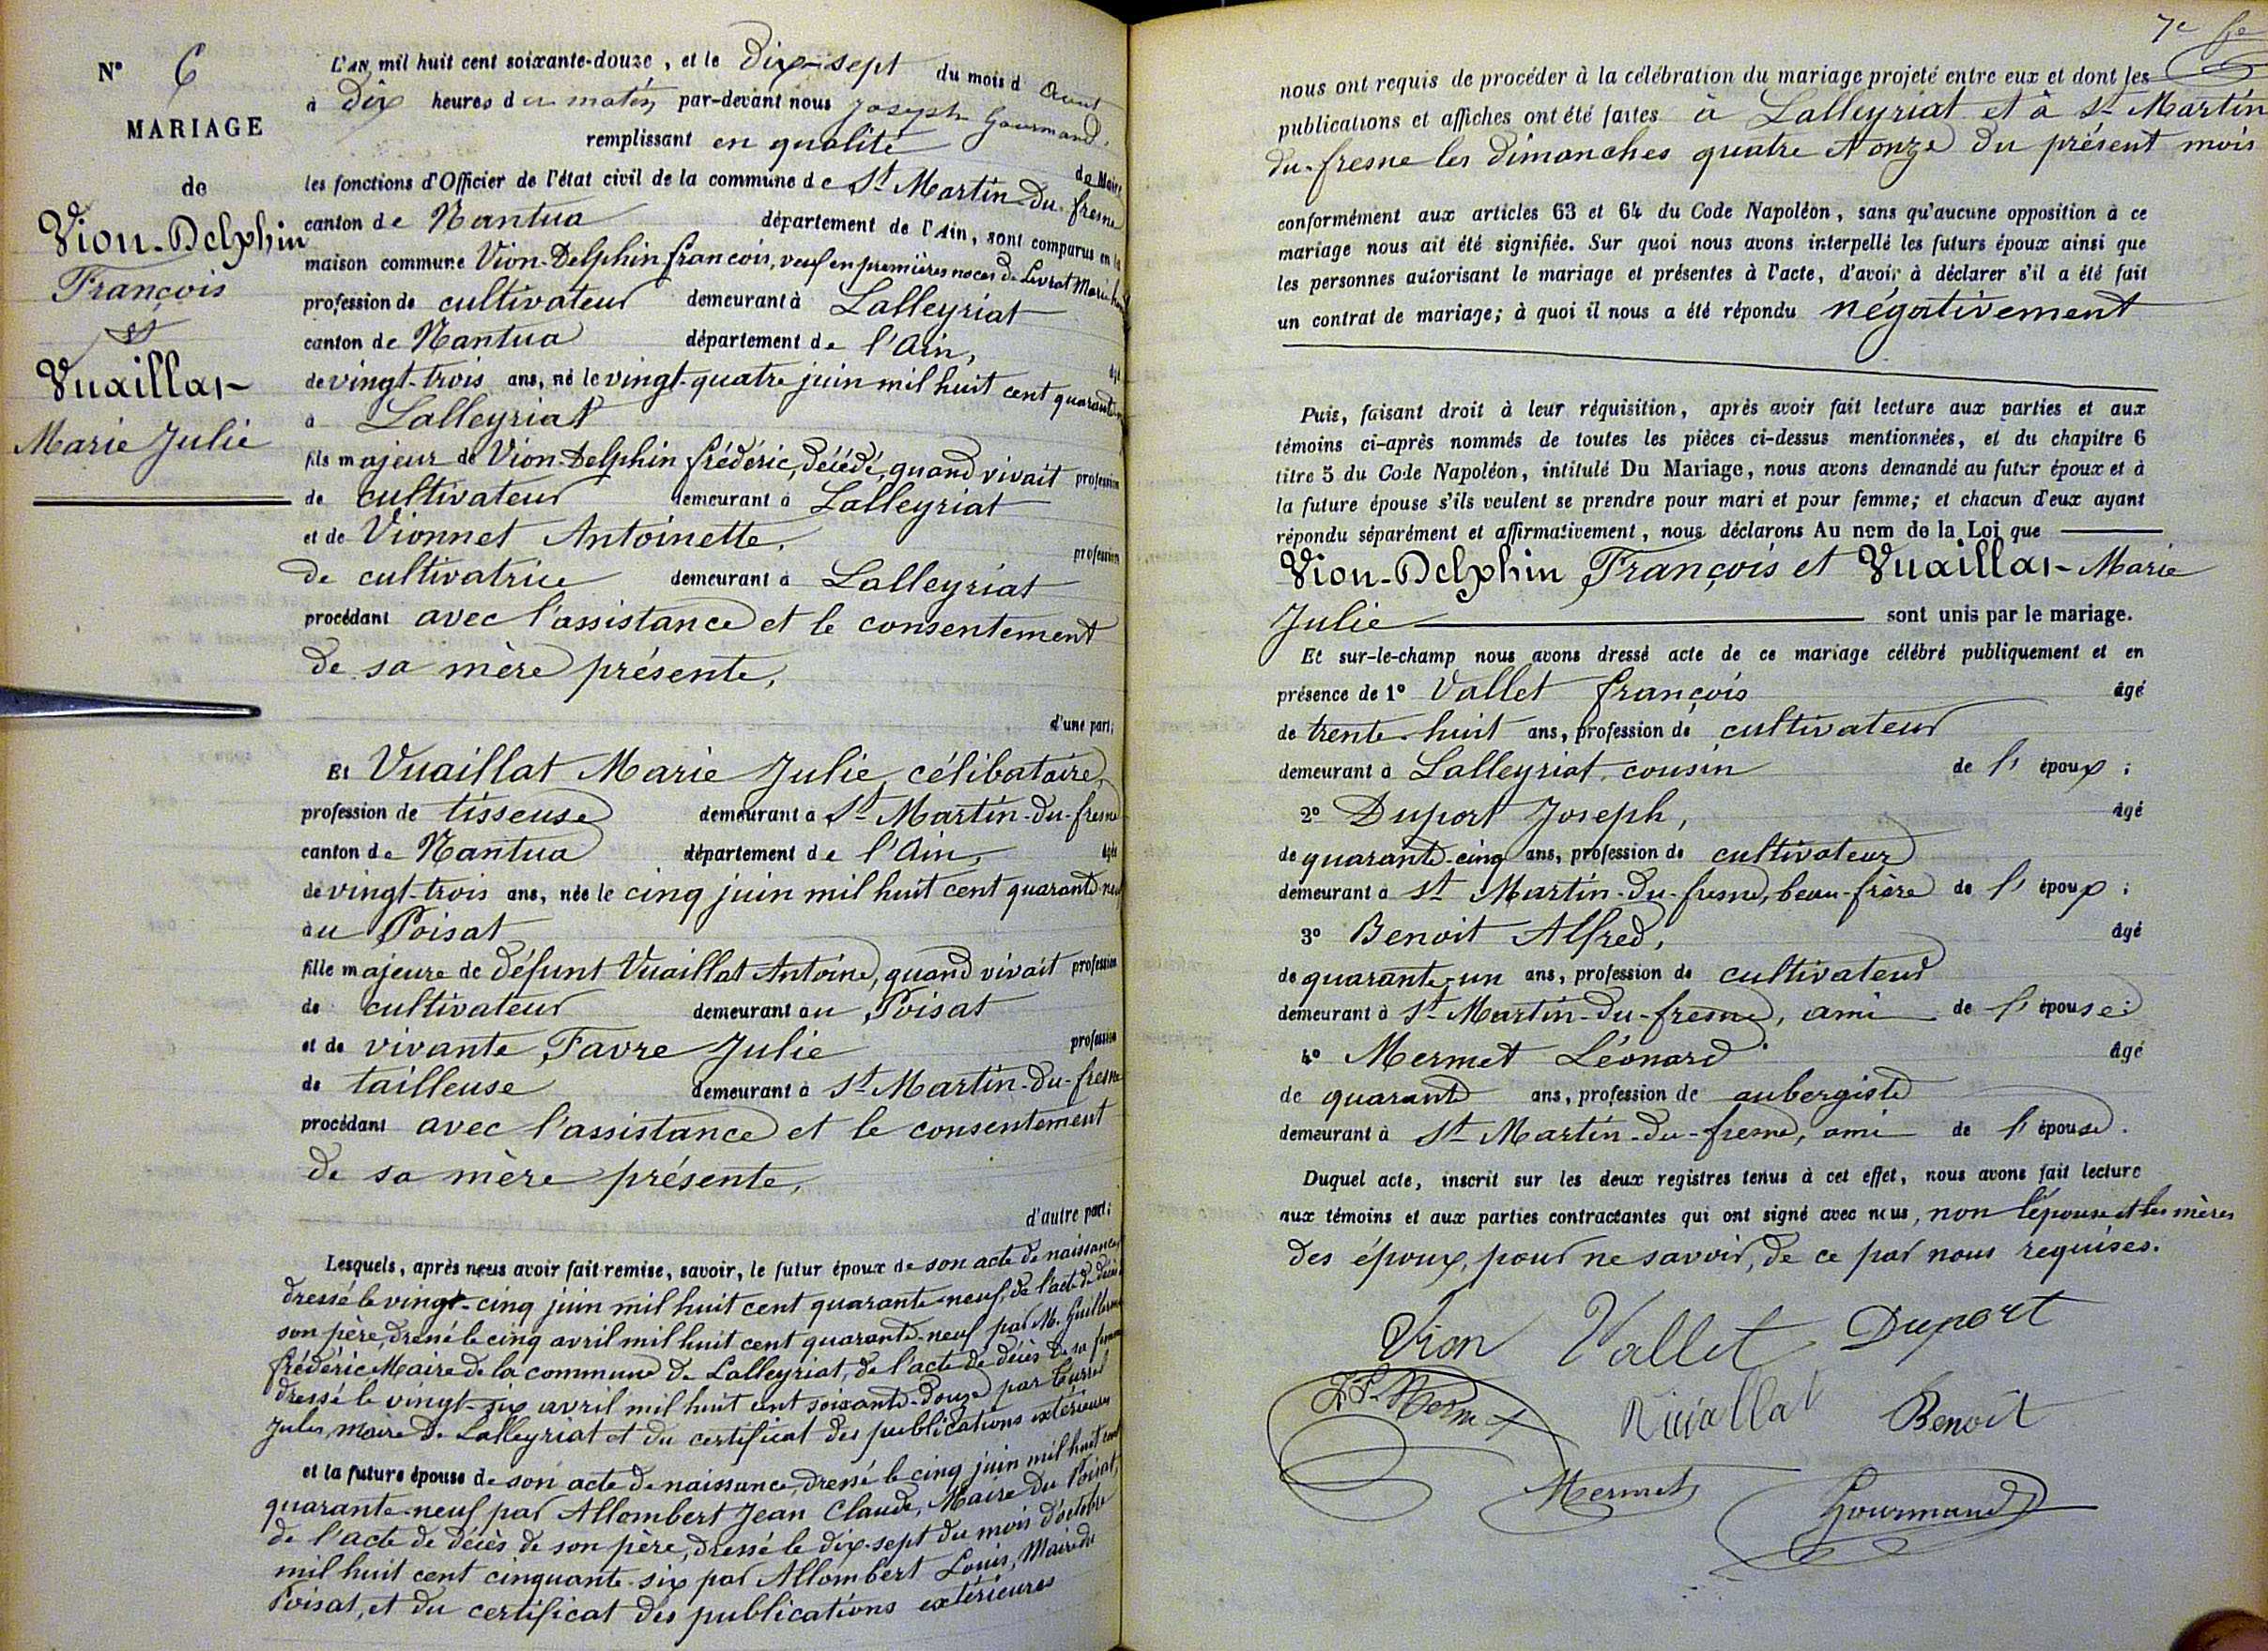 N° 6
MARIAGE
de
Vion-Delphin
François
et
Vuaillat
Marie Julie
L'AN mil huit cent soixante-douze, et le Dix-sept du mois d Aout
à Dix heures du matin, par-devant nous Joseph Gourmand,
remplissant en qualité de Maire
les fonctions d'Officier de l'état civil de la commune de St Martin-du-fresne
canton de Nantua département de l'Ain, sont comparus en la
maison commune Vion-Delphin françois, veuf en premières noces de Levrat Marie
profession de cultivateur demeurant à Lalleyriat
canton de Nantua département de l'Ain, âgé
de vingt-trois ans, né le vingt-quatre juin mil huit cent quarante
à Lalleyriat
fils majeur de Vion-Delphin frédéric, décédé, quand vivait profession
de cultivateur demeurant à Lalleyriat
et de Vionnet Antoinette, profession
de cultivatrice demeurant à Lalleyriat
procédant avec l'assistance et le consentement
de sa mère présente,
d'une part;
Et Vuaillat Marie Julie, célibataire,
profession de tisseuse demeurant à St Martin-du-fresne
canton de Nantua département de l'Ain, âgée
de vingt-trois ans, née le cinq juin mil huit cent quarante-neuf
au Poisat
fille majeure de défunt Vuaillat Antoine, quand vivait profession
de cultivateur demeurant au Poisat
et de vivante Favre Julie profession
de tailleuse demeurant à St Martin-du-fresne
procédant avec l'assistance et le consentement
de sa mère présente,
d'autre part;
Lesquels, après nous avoir fait remise, savoir, le futur époux de son acte de naissance
dressé le vingt-cinq juin mil huit cent quarante-neuf, de l'acte de décès
son père, dressé le cinq avril mil huit cent quarante-neuf par M.
frédéric, Maire de la commune de Lalleyriat, de l'acte de décès de sa femme
dressé le vingt-six avril mil huit cent soixante-douze par
Jules, maire de Lalleyriat et du certificat des publications extérieures
et la future épouse de son acte de naissance, dressé le cinq juin mil huit cent
quarante-neuf par Allombert Jean Claude, Maire du Poisat,
de l'acte de décès de son père, dressé le dix-sept du mois d'octobre
mil huit cent cinquante-six par Allombert Louis, Maire du
Poisat, et du certificat des publications extérieures
7e
nous ont requis de procéder à la célébration du mariage projeté entre eux et dont les
publications et affiches ont été faites à Lalleyriat et à St Martin
du-fresne les dimanches quatre et onze du présent mois
conformément aux articles 63 et 64 du Code Napoléon, sans qu'aucune opposition à ce
mariage nous ait été signifiée. Sur quoi nous avons interpellé les futurs époux ainsi que
les personnes autorisant le mariage et présentes à l'acte, d'avoir à déclarer s'il a été fait
un contrat de mariage; à quoi il nous a été répondu négativement
Puis, faisant droit à leur réquisition, après avoir fait lecture aux parties et aux
témoins ci-après nommés de toutes les pièces ci-dessus mentionnées, et du chapitre 6
titre 5 du Code Napoléon, intitulé Du Mariage, nous avons demandé au futur époux et à
la future épouse s'ils veulent se prendre pour mari et pour femme; et chacun d'eux ayant
répondu séparément et affirmativement, nous déclarons Au nom de la Loi que
Vion-Delphin François et Vuaillat Marie
Julie sont unis par le mariage.
Et sur-le-champ nous avons dressé acte de ce mariage célébré publiquement et en
présence de 1° Vallet françois âgé
de trente-huit ans, profession de cultivateur
demeurant à Lalleyriat, cousin de l'époux;
2° Duport Joseph, âgé
de quarante-cinq ans, profession de cultivateur
demeurant à St Martin-du-fresne, beau-frère de l'époux;
3° Benoit Alfred, âgé
de quarante-un ans, profession de cultivateur
demeurant à St Martin-du-fresne, ami de l'épouse;
4° Mermet Léonard âgé
de quarante ans, profession de aubergiste
demeurant à St Martin-du-fresne, ami de l'épouse.
Duquel acte, inscrit sur les deux registres tenus à cet effet, nous avons fait lecture
aux témoins et aux parties contractantes qui ont signé avec nous, non l'épouse et les mères
des époux, pour ne savoir, de ce par nous requises.
Vion Vallet Duport
Benoit
Mermet Gourmand